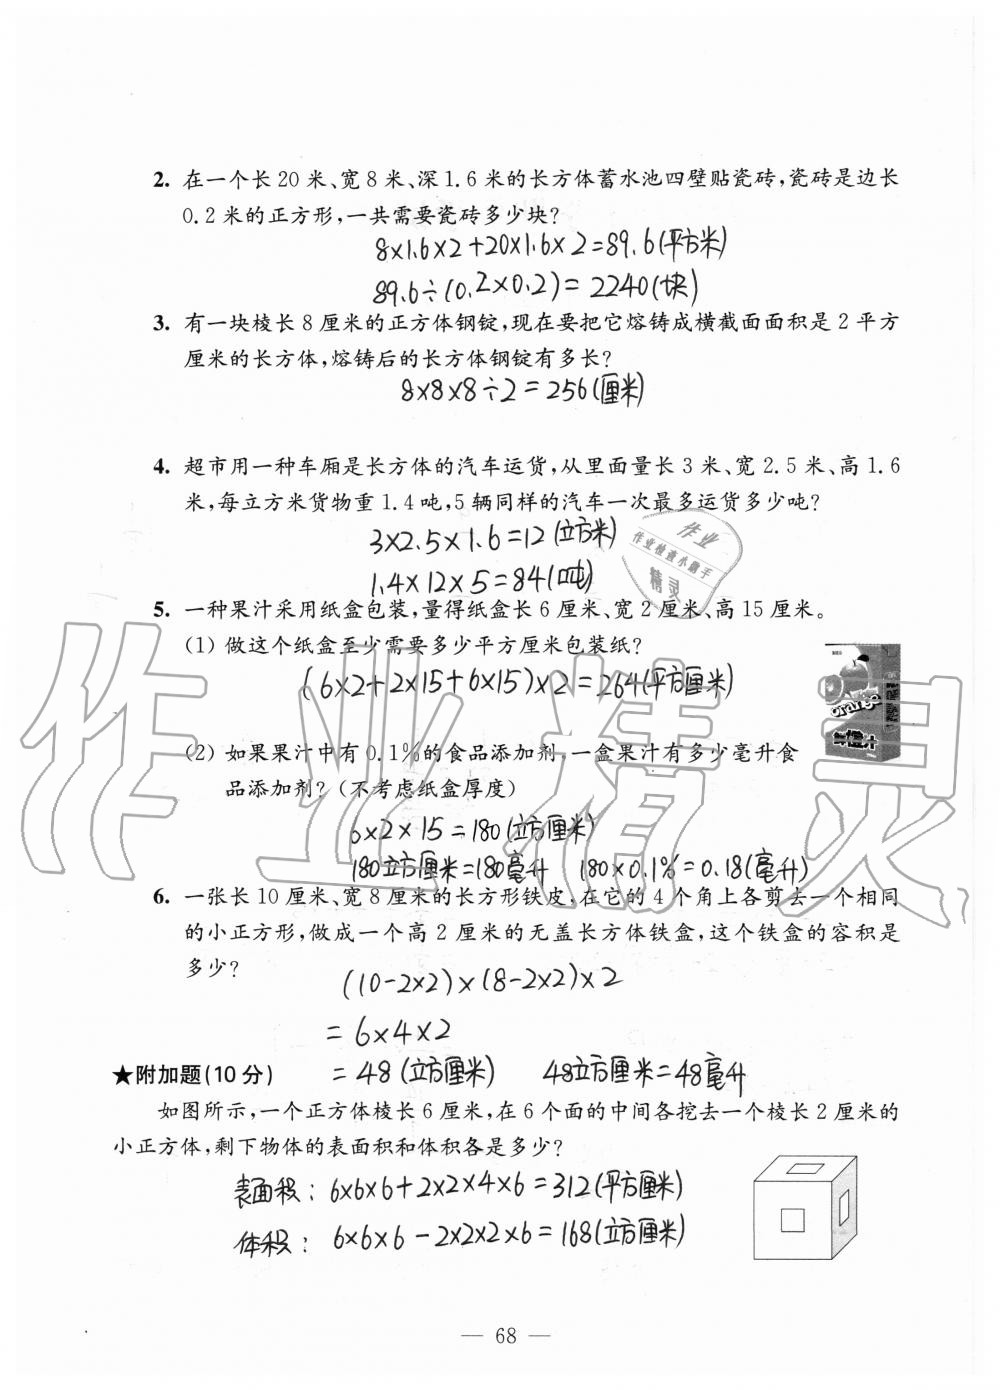 2. 在一个长20米、宽8米、深1.6米的长方体蓄水池四壁贴瓷砖,瓷砖是边长
0.2米的正方形,一共需要瓷砖多少块?
8×1.6×2+20×1.6×2=89.6(平方米)
89.6÷(0.2×0.2)=2240(块)
3. 有一块棱长8厘米的正方体钢锭,现在要把它熔铸成横截面面积是2平方
厘米的长方体,熔铸后的长方体钢锭有多长?
8×8×8÷2=256(厘米)
4. 超市用一种车厢是长方体的汽车运货,从里面量长3米、宽2.5米、高1.6
米,每立方米货物重1.4吨,5辆同样的汽车一次最多运货多少吨?
3×2.5×1.6=12(立方米)
1.4×12×5=84(吨)
作业
作业检查小助手
精灵
5. 一种果汁采用纸盒包装,量得纸盒长6厘米、宽2厘米、高15厘米。
(1) 做这个纸盒至少需要多少平方厘米包装纸?
(6×2+2×15+6×15)×2=264(平方厘米)
orange
鲜橙汁
(2) 如果果汁中有0.1%的食品添加剂,一盒果汁有多少毫升食
品添加剂?(不考虑纸盒厚度)
6×2×15=180(立方厘米)
180立方厘米=180毫升 180×0.1%=0.18(毫升)
作业精灵
6. 一张长10厘米、宽8厘米的长方形铁皮,在它的4个角上各剪去一个相同
的小正方形,做成一个高2厘米的无盖长方体铁盒,这个铁盒的容积是
多少?
(10-2×2)×(8-2×2)×2
=6×4×2
=48(立方厘米) 48立方厘米=48毫升
★附加题(10分)
如图所示,一个正方体棱长6厘米,在6个面的中间各挖去一个棱长2厘米的
小正方体,剩下物体的表面积和体积各是多少?
表面积: 6×6×6+2×2×4×6=312(平方厘米)
体积: 6×6×6-2×2×2×6=168(立方厘米)
— 68 —